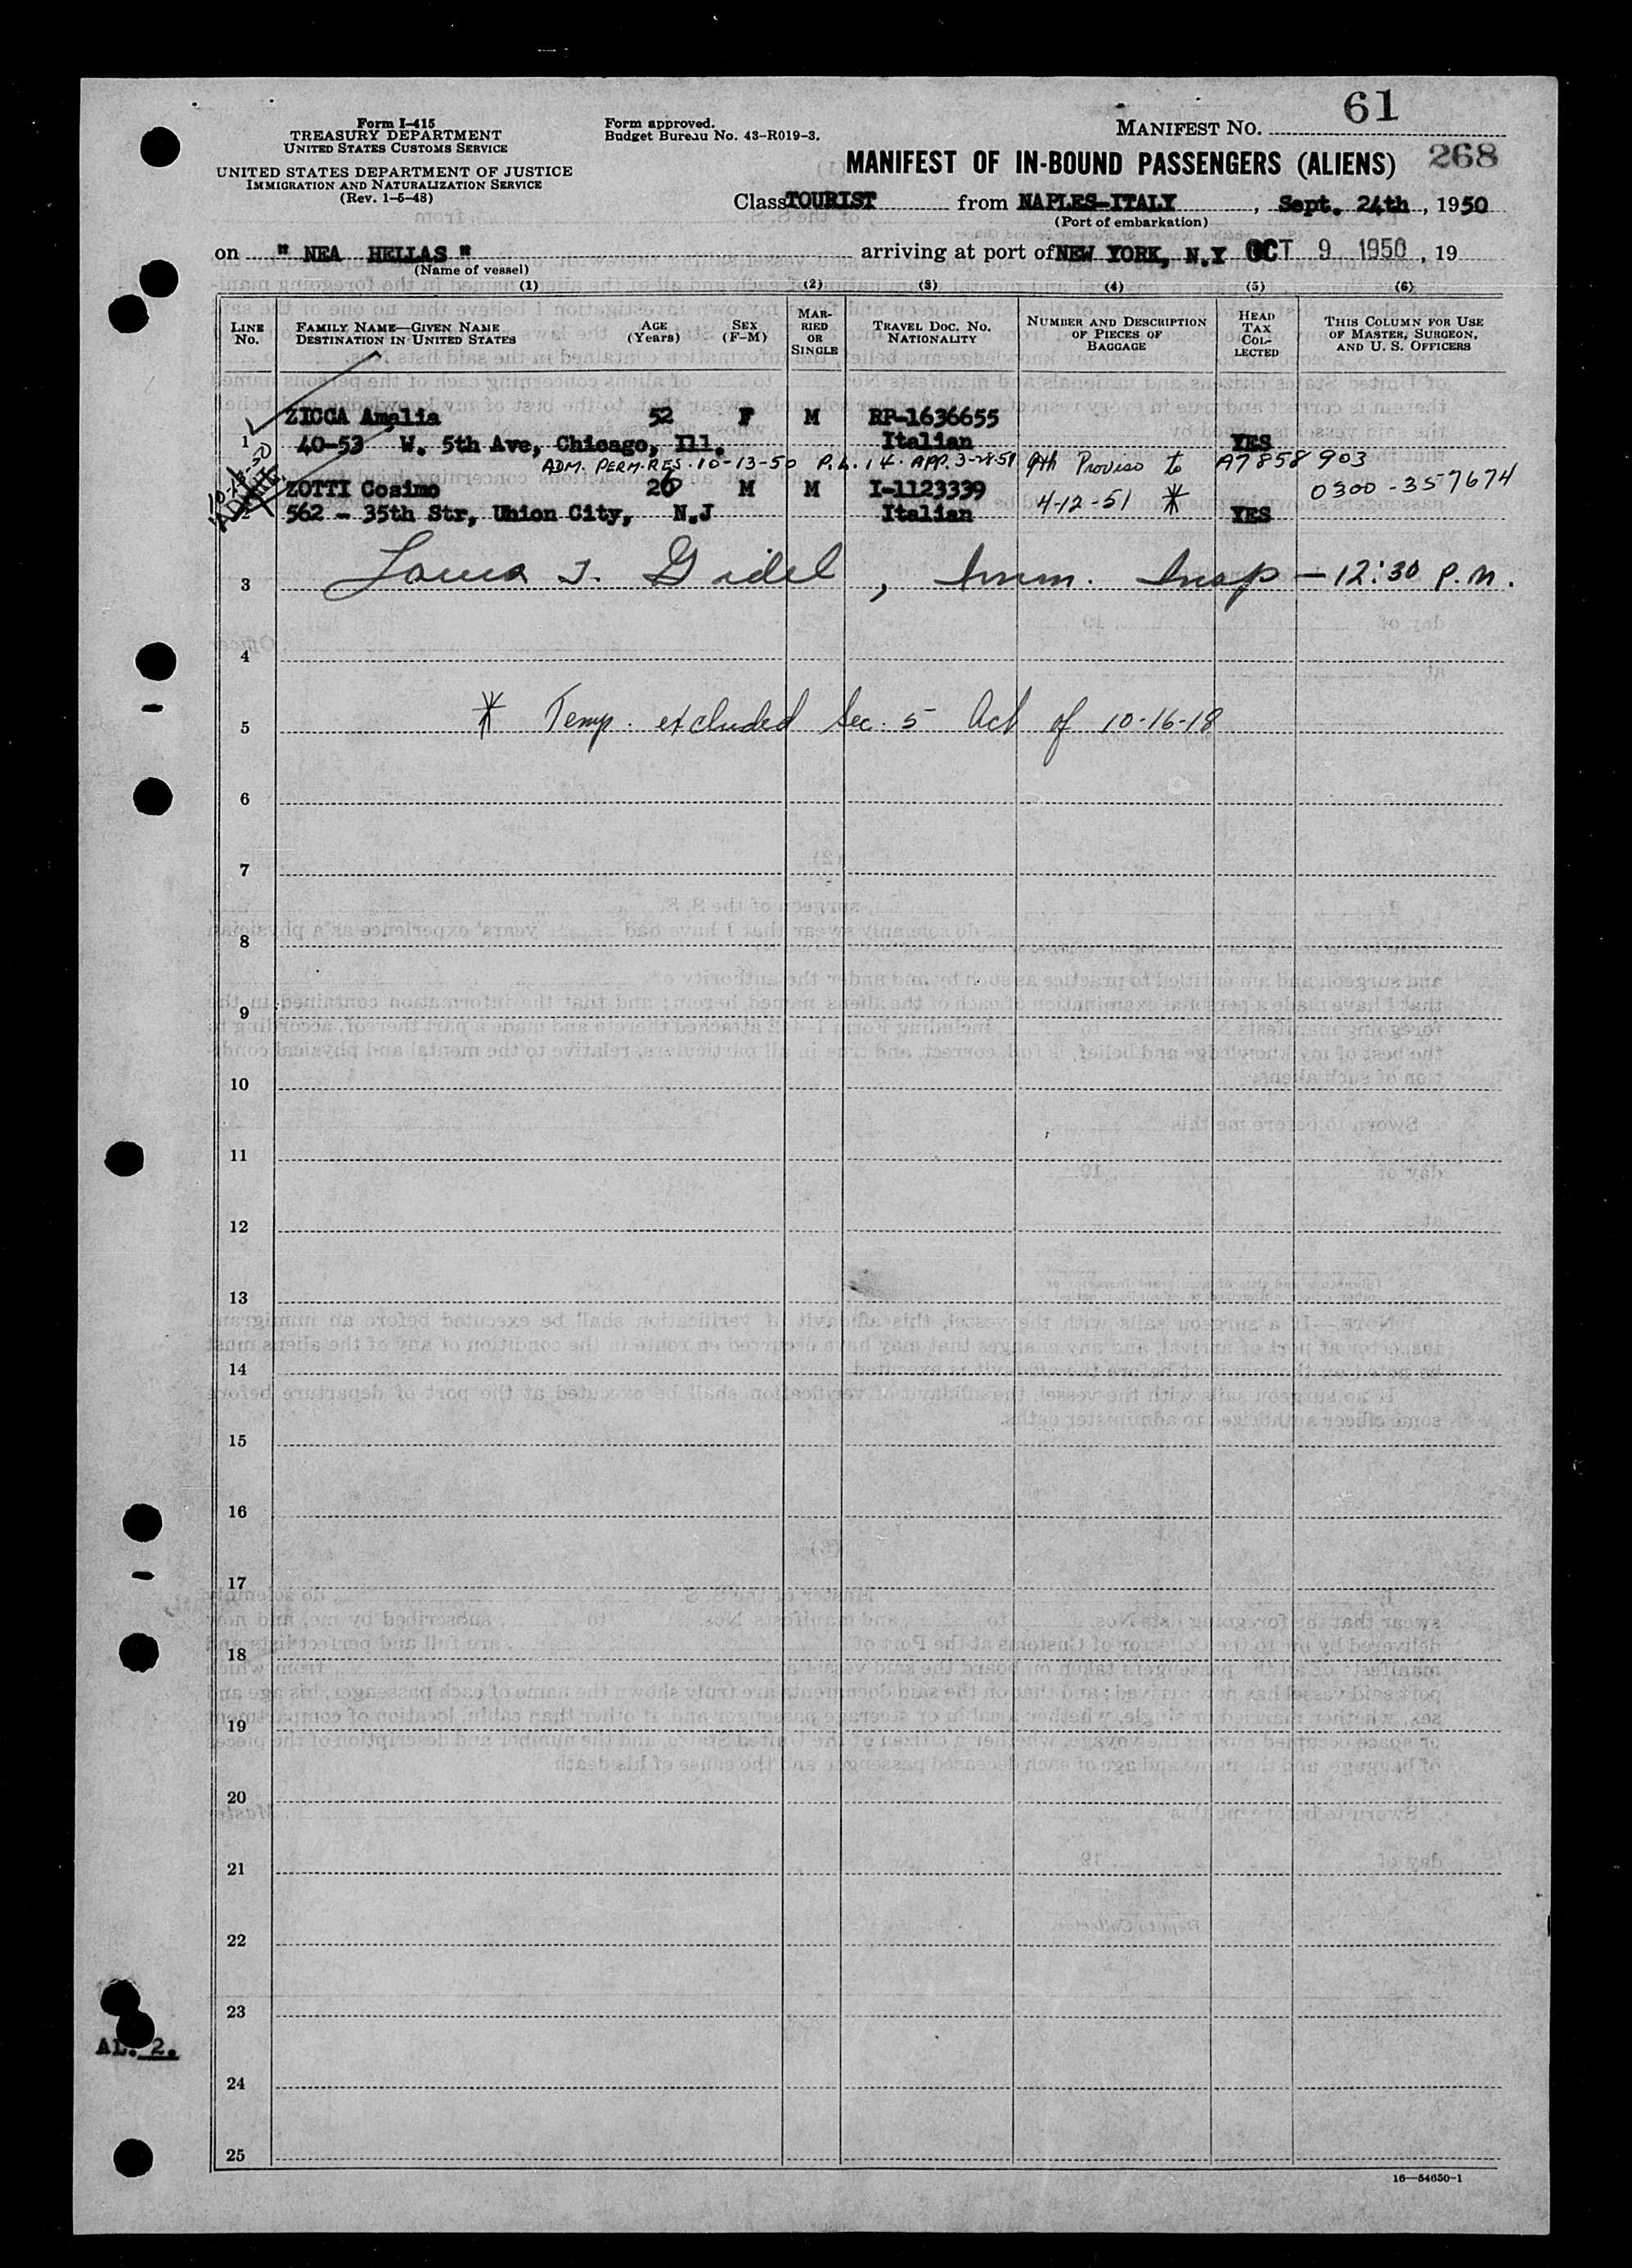 61
Form I-415
TREASURY DEPARTMENT
UNITED STATES CUSTOMS SERVICE
UNITED STATES DEPARTMENT OF JUSTICE
IMMIGRATION AND NATURALIZATION SERVICE
(Rev. 1-5-48)
Form approved.
Budget Bureau No. 43-R019-3.
MANIFEST NO.
MANIFEST OF IN-BOUND PASSENGERS (ALIENS) 268
Class TOURIST from NAPLES-ITALY, Sept. 24th, 1950
(Port of embarkation)
on " NEA HELLAS " arriving at port of NEW YORK, N.Y OCT 9 1950, 19
(Name of vessel)
(1) (2) (3) (4) (5) (6)
LINE No. FAMILY NAME—GIVEN NAME DESTINATION IN UNITED STATES AGE (Years) SEX (F-M) MARRIED OR SINGLE TRAVEL DOC. NO. NATIONALITY NUMBER AND DESCRIPTION OF PIECES OF BAGGAGE HEAD TAX COLLECTED THIS COLUMN FOR USE OF MASTER, SURGEON, AND U. S. OFFICERS
ZICCA Amalia 52 F M RP-1636655
1 40-53 W. 5th Ave, Chicago, Ill. Italian YES
ADM. PERM. RES. 10-13-50 P.L. 14. APP. 3-28-51 9th Proviso to A7858903
ZOTTI Cosimo 26 M M I-1123339 4-12-51 * 0300-357674
2 562 - 35th Str, Union City, N.J Italian YES
3 J. Gidel, Imm. Insp - 12:30 P.M.
4
5 * Temp. excluded Sec. 5 Act of 10-16-18
6
7
8
9
10
11
12
13
14
15
16
17
18
19
20
21
22
23
AL. 2.
24
25
16—54650-1